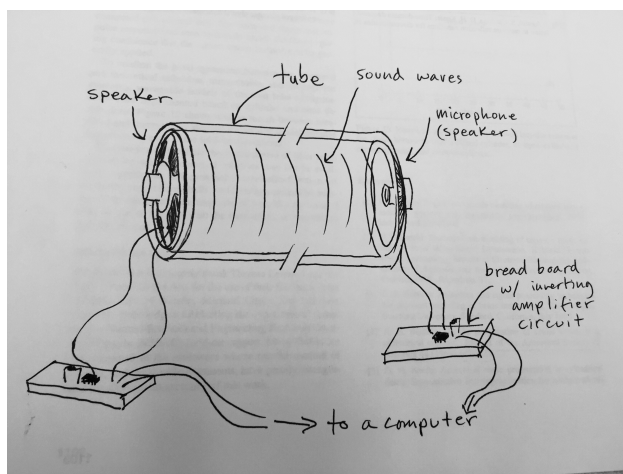 speaker
tube
sound waves
microphone
(speaker)
bread board
w/ inverting
amplifier
circuit
to a computer